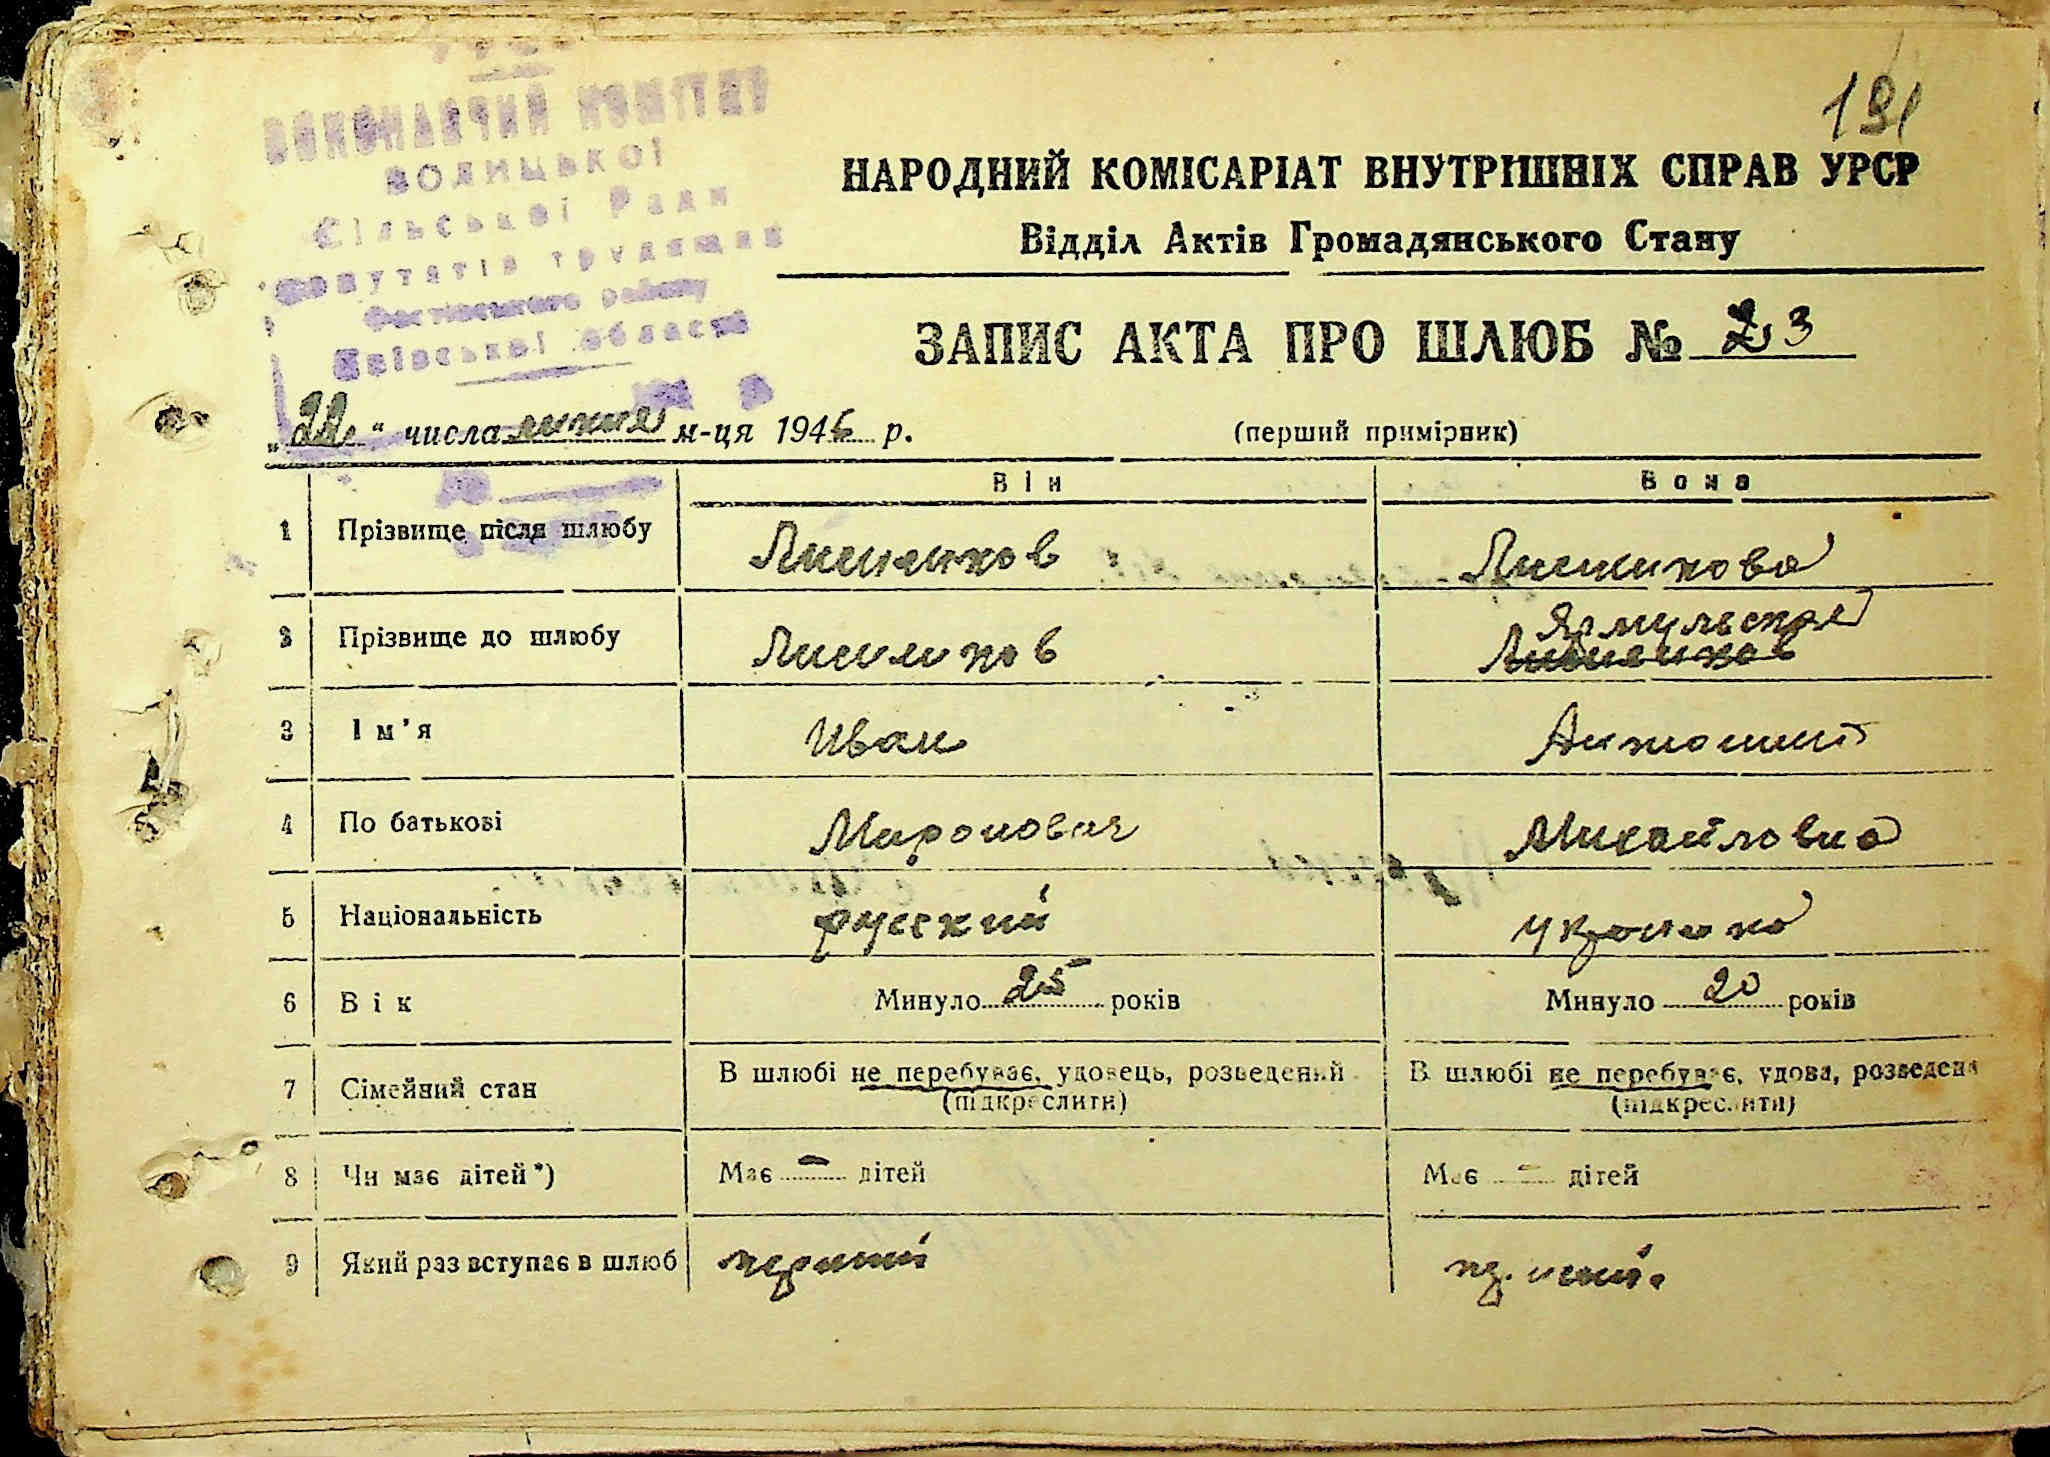 191
ВИКОНАВЧИЙ КОМІТЕТ
ВОЛИЦЬКОЇ
Сільської Ради
депутатів трудящих
Фастівського району
Київської області
НАРОДНИЙ КОМІСАРІАТ ВНУТРІШНІХ СПРАВ УРСР
Відділ Актів Громадянського Стану
ЗАПИС АКТА ПРО ШЛЮБ № 23
„22“ числа липня м-ця 1946 р.
(перший примірник)
Він Вона
1 Прізвище після шлюбу
2 Прізвище до шлюбу Ярмульская
3 Ім’я Иван
4 По батькові Миронович Михайловна
5 Національність русский украинка
6 Вік Минуло 25 років Минуло 20 років
7 Сімейний стан В шлюбі не перебуває, удовець, розведений В шлюбі не перебуває, удова, розведена
(підкреслити) (підкреслити)
8 Чи має дітей*) Має — дітей Має — дітей
9 Який раз вступає в шлюб перший